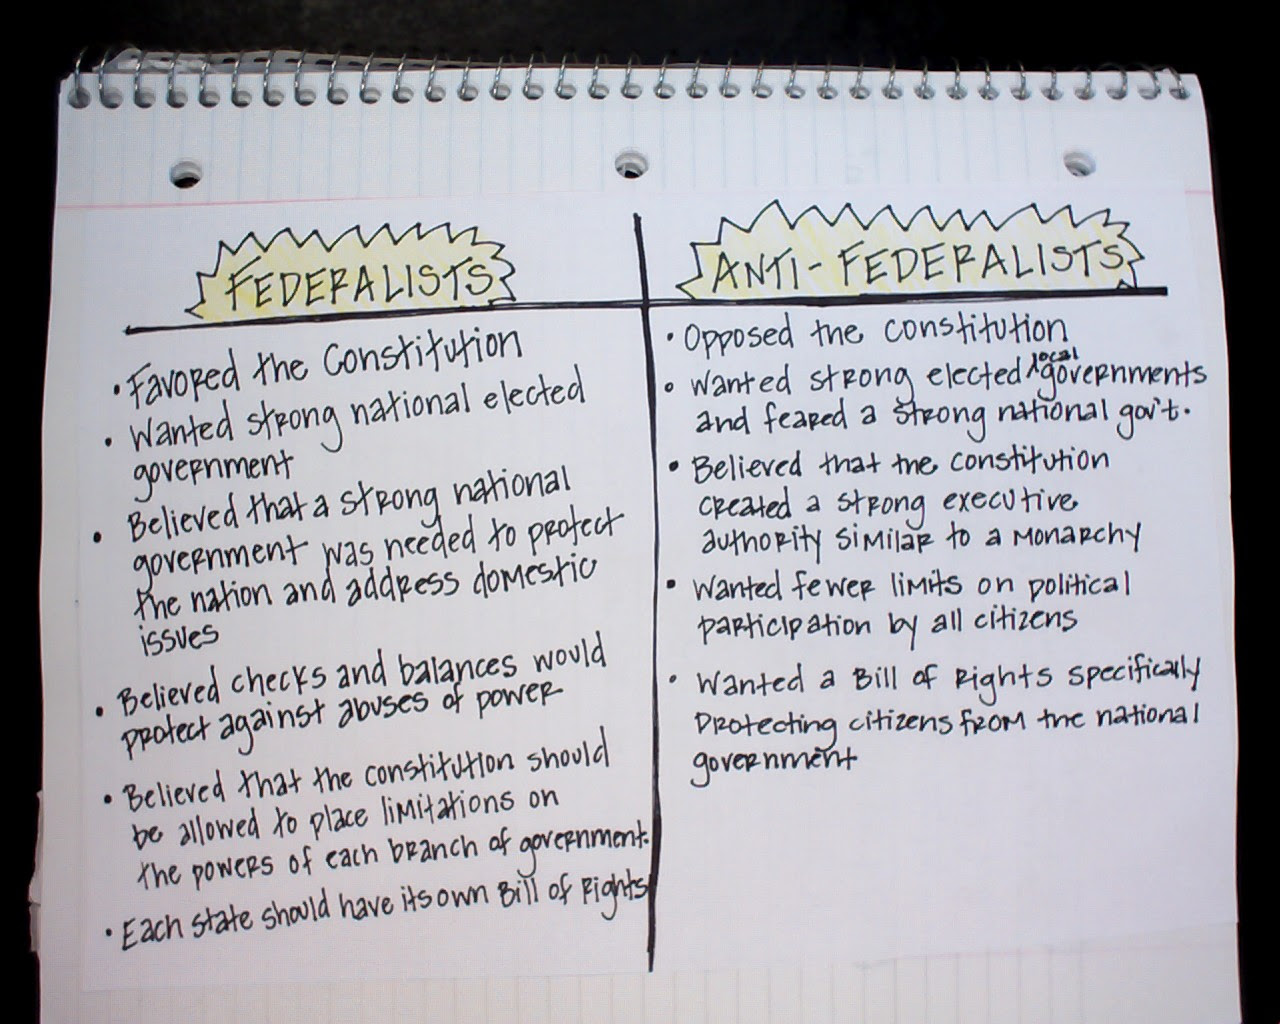 FEDERALISTS
• Favored the Constitution
• Wanted strong national elected
government
• Believed that a strong national
government was needed to protect
the nation and address domestic
issues
• Believed checks and balances would
protect against abuses of power
• Believed that the constitution should
be allowed to place limitations on
the powers of each branch of government.
• Each state should have its own Bill of Rights
ANTI-FEDERALISTS
• Opposed the constitution
• Wanted strong elected local governments
and feared a strong national gov't.
• Believed that the constitution
created a strong executive
authority similar to a monarchy
• Wanted fewer limits on political
participation by all citizens
• Wanted a Bill of Rights specifically
protecting citizens from the national
government